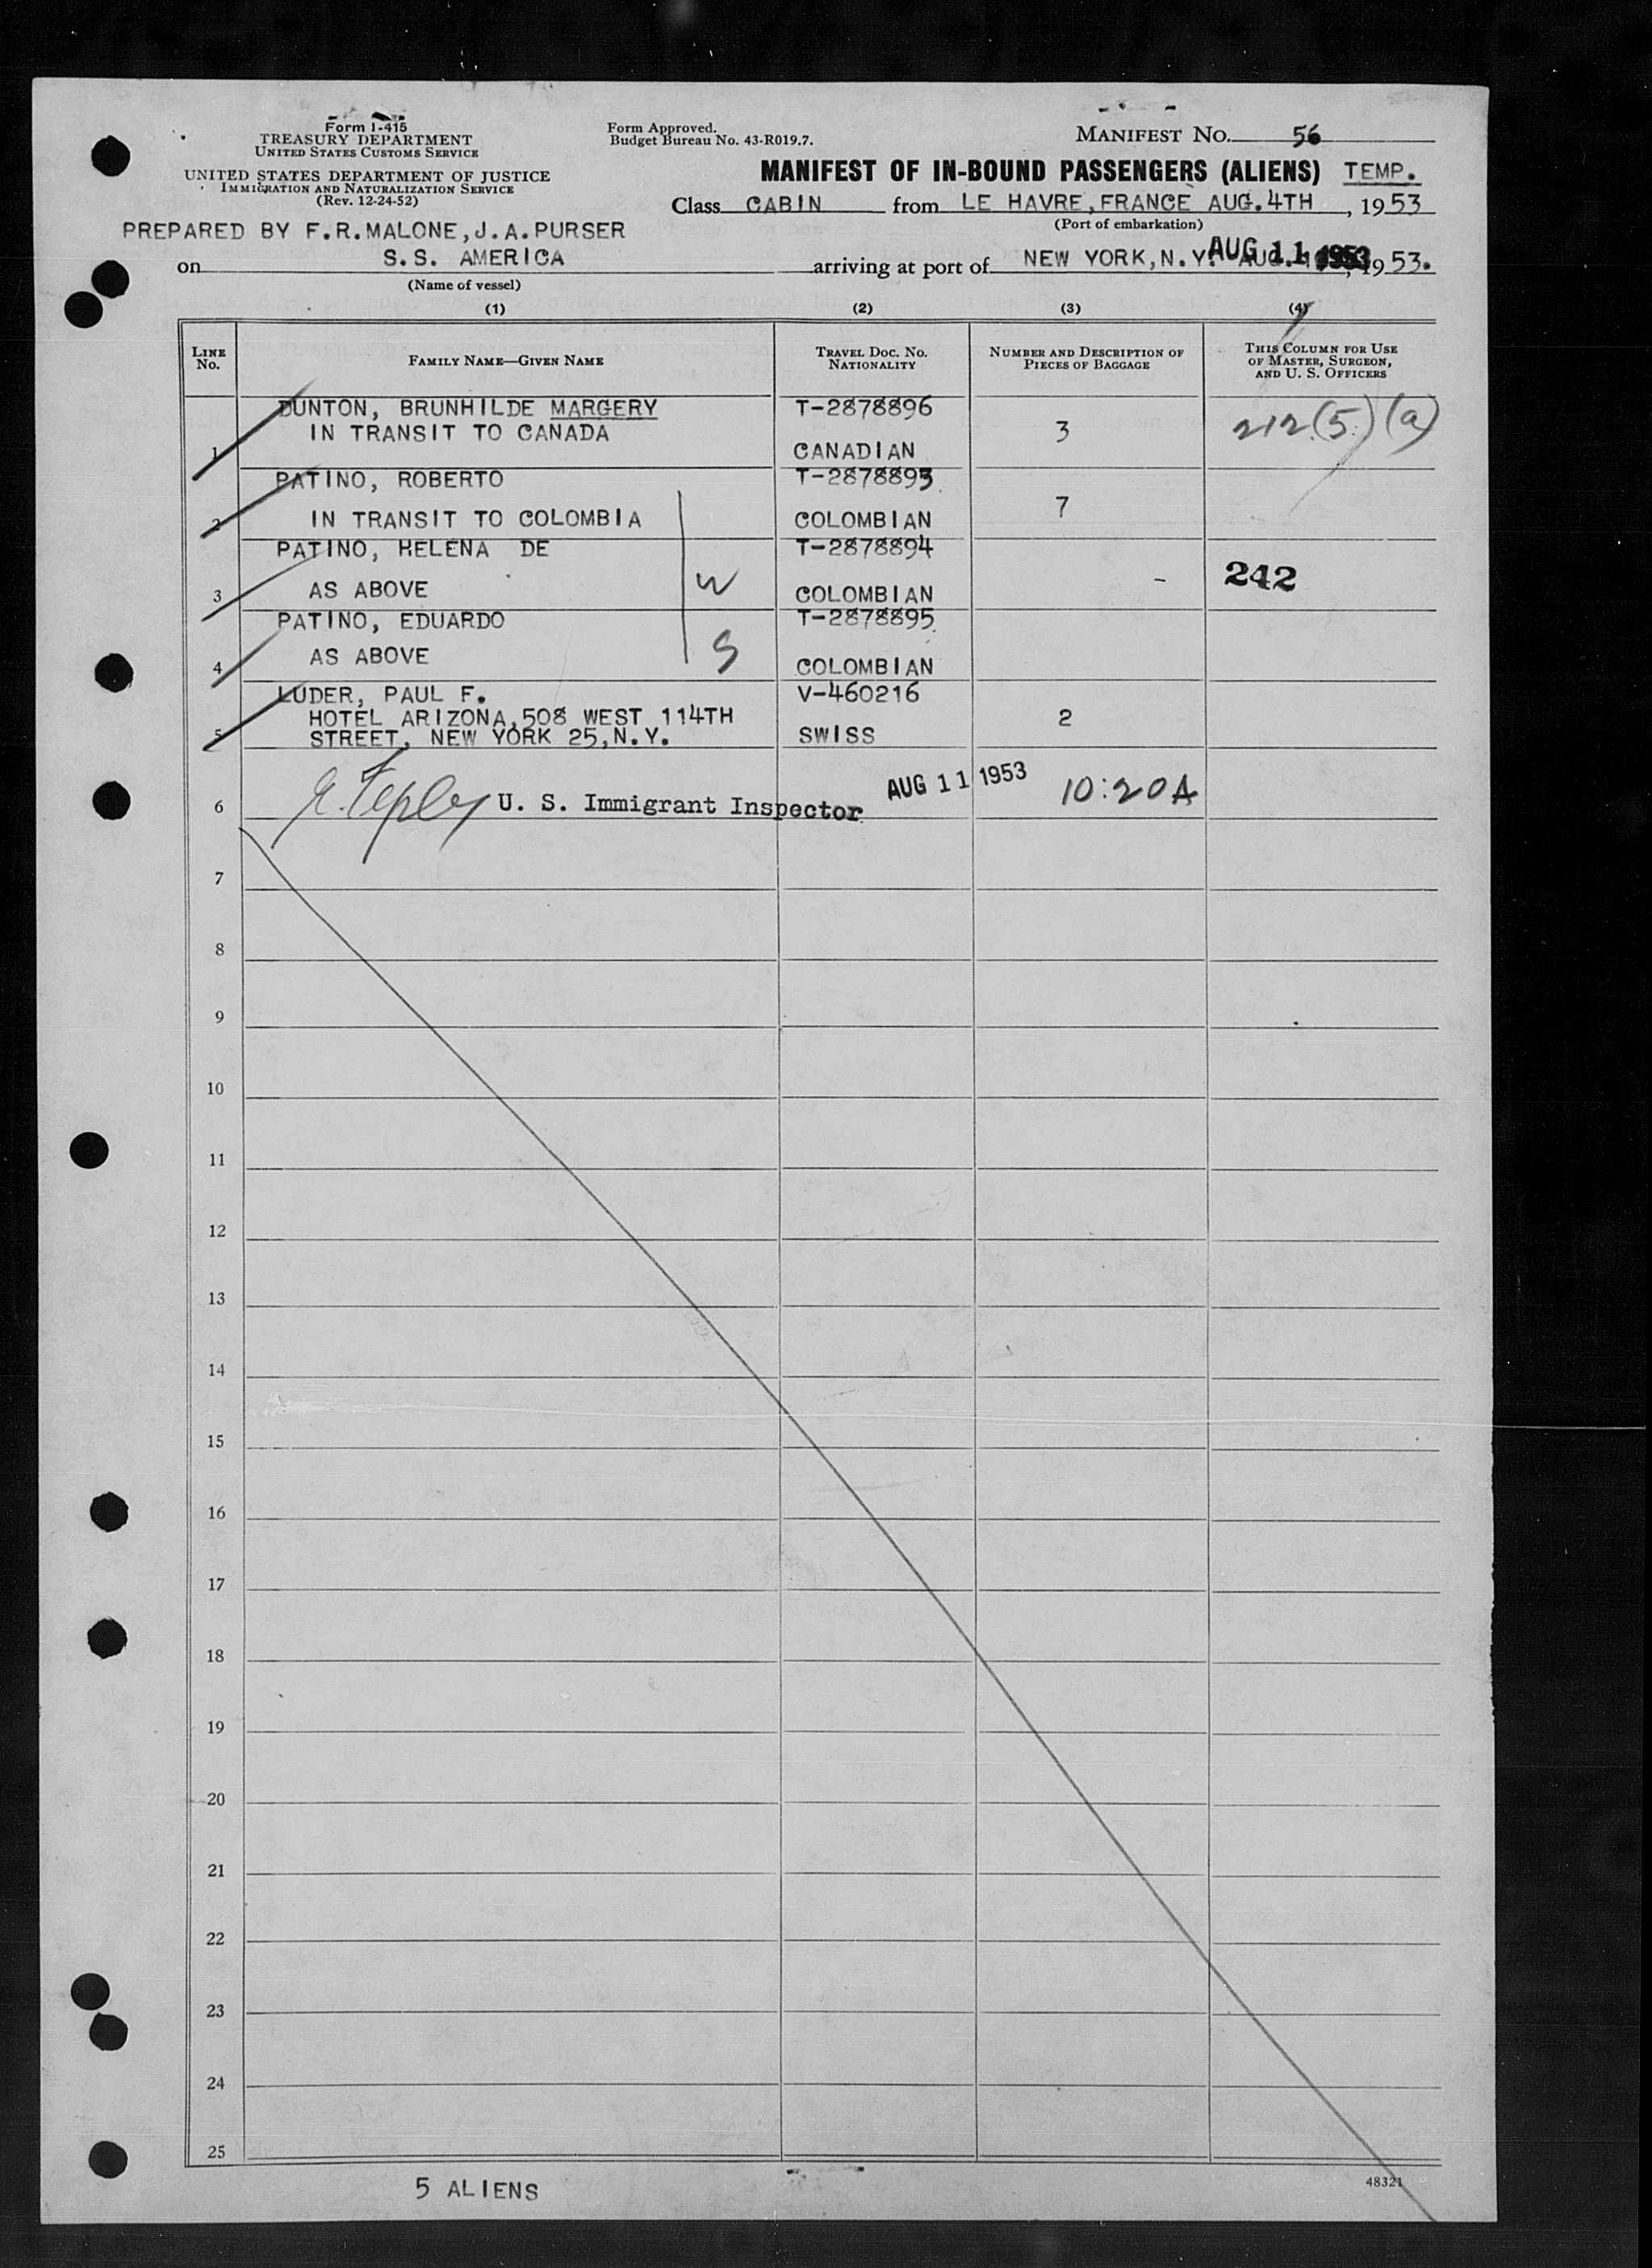 Form I-415
TREASURY DEPARTMENT
UNITED STATES CUSTOMS SERVICE
UNITED STATES DEPARTMENT OF JUSTICE
IMMIGRATION AND NATURALIZATION SERVICE
(Rev. 12-24-52)
Form Approved.
Budget Bureau No. 43-R019.7.
MANIFEST NO. 56
MANIFEST OF IN-BOUND PASSENGERS (ALIENS) TEMP.
Class CABIN from LE HAVRE, FRANCE AUG. 4TH, 1953
(Port of embarkation)
PREPARED BY F.R.MALONE, J.A. PURSER
on S.S. AMERICA arriving at port of NEW YORK, N.Y. AUG 11 1953, 1953.
(Name of vessel)
(1) (2) (3) (4)
LINE No. FAMILY NAME—GIVEN NAME TRAVEL DOC. NO. NATIONALITY NUMBER AND DESCRIPTION OF PIECES OF BAGGAGE THIS COLUMN FOR USE OF MASTER, SURGEON, AND U. S. OFFICERS
1 DUNTON, BRUNHILDE MARGERY T-2878896 3 212(5)(a)
IN TRANSIT TO CANADA CANADIAN
2 PATINO, ROBERTO T-2878893 7
IN TRANSIT TO COLOMBIA COLOMBIAN
3 PATINO, HELENA DE T-2878894 - 242
AS ABOVE W COLOMBIAN
4 PATINO, EDUARDO T-2878895
AS ABOVE S COLOMBIAN
5 LUDER, PAUL F. V-460216 2
HOTEL ARIZONA, 508 WEST 114TH
STREET, NEW YORK 25, N.Y. SWISS
6 U. S. Immigrant Inspector AUG 11 1953 10:20A
7
8
9
10
11
12
13
14
15
16
17
18
19
20
21
22
23
24
25
5 ALIENS
48321